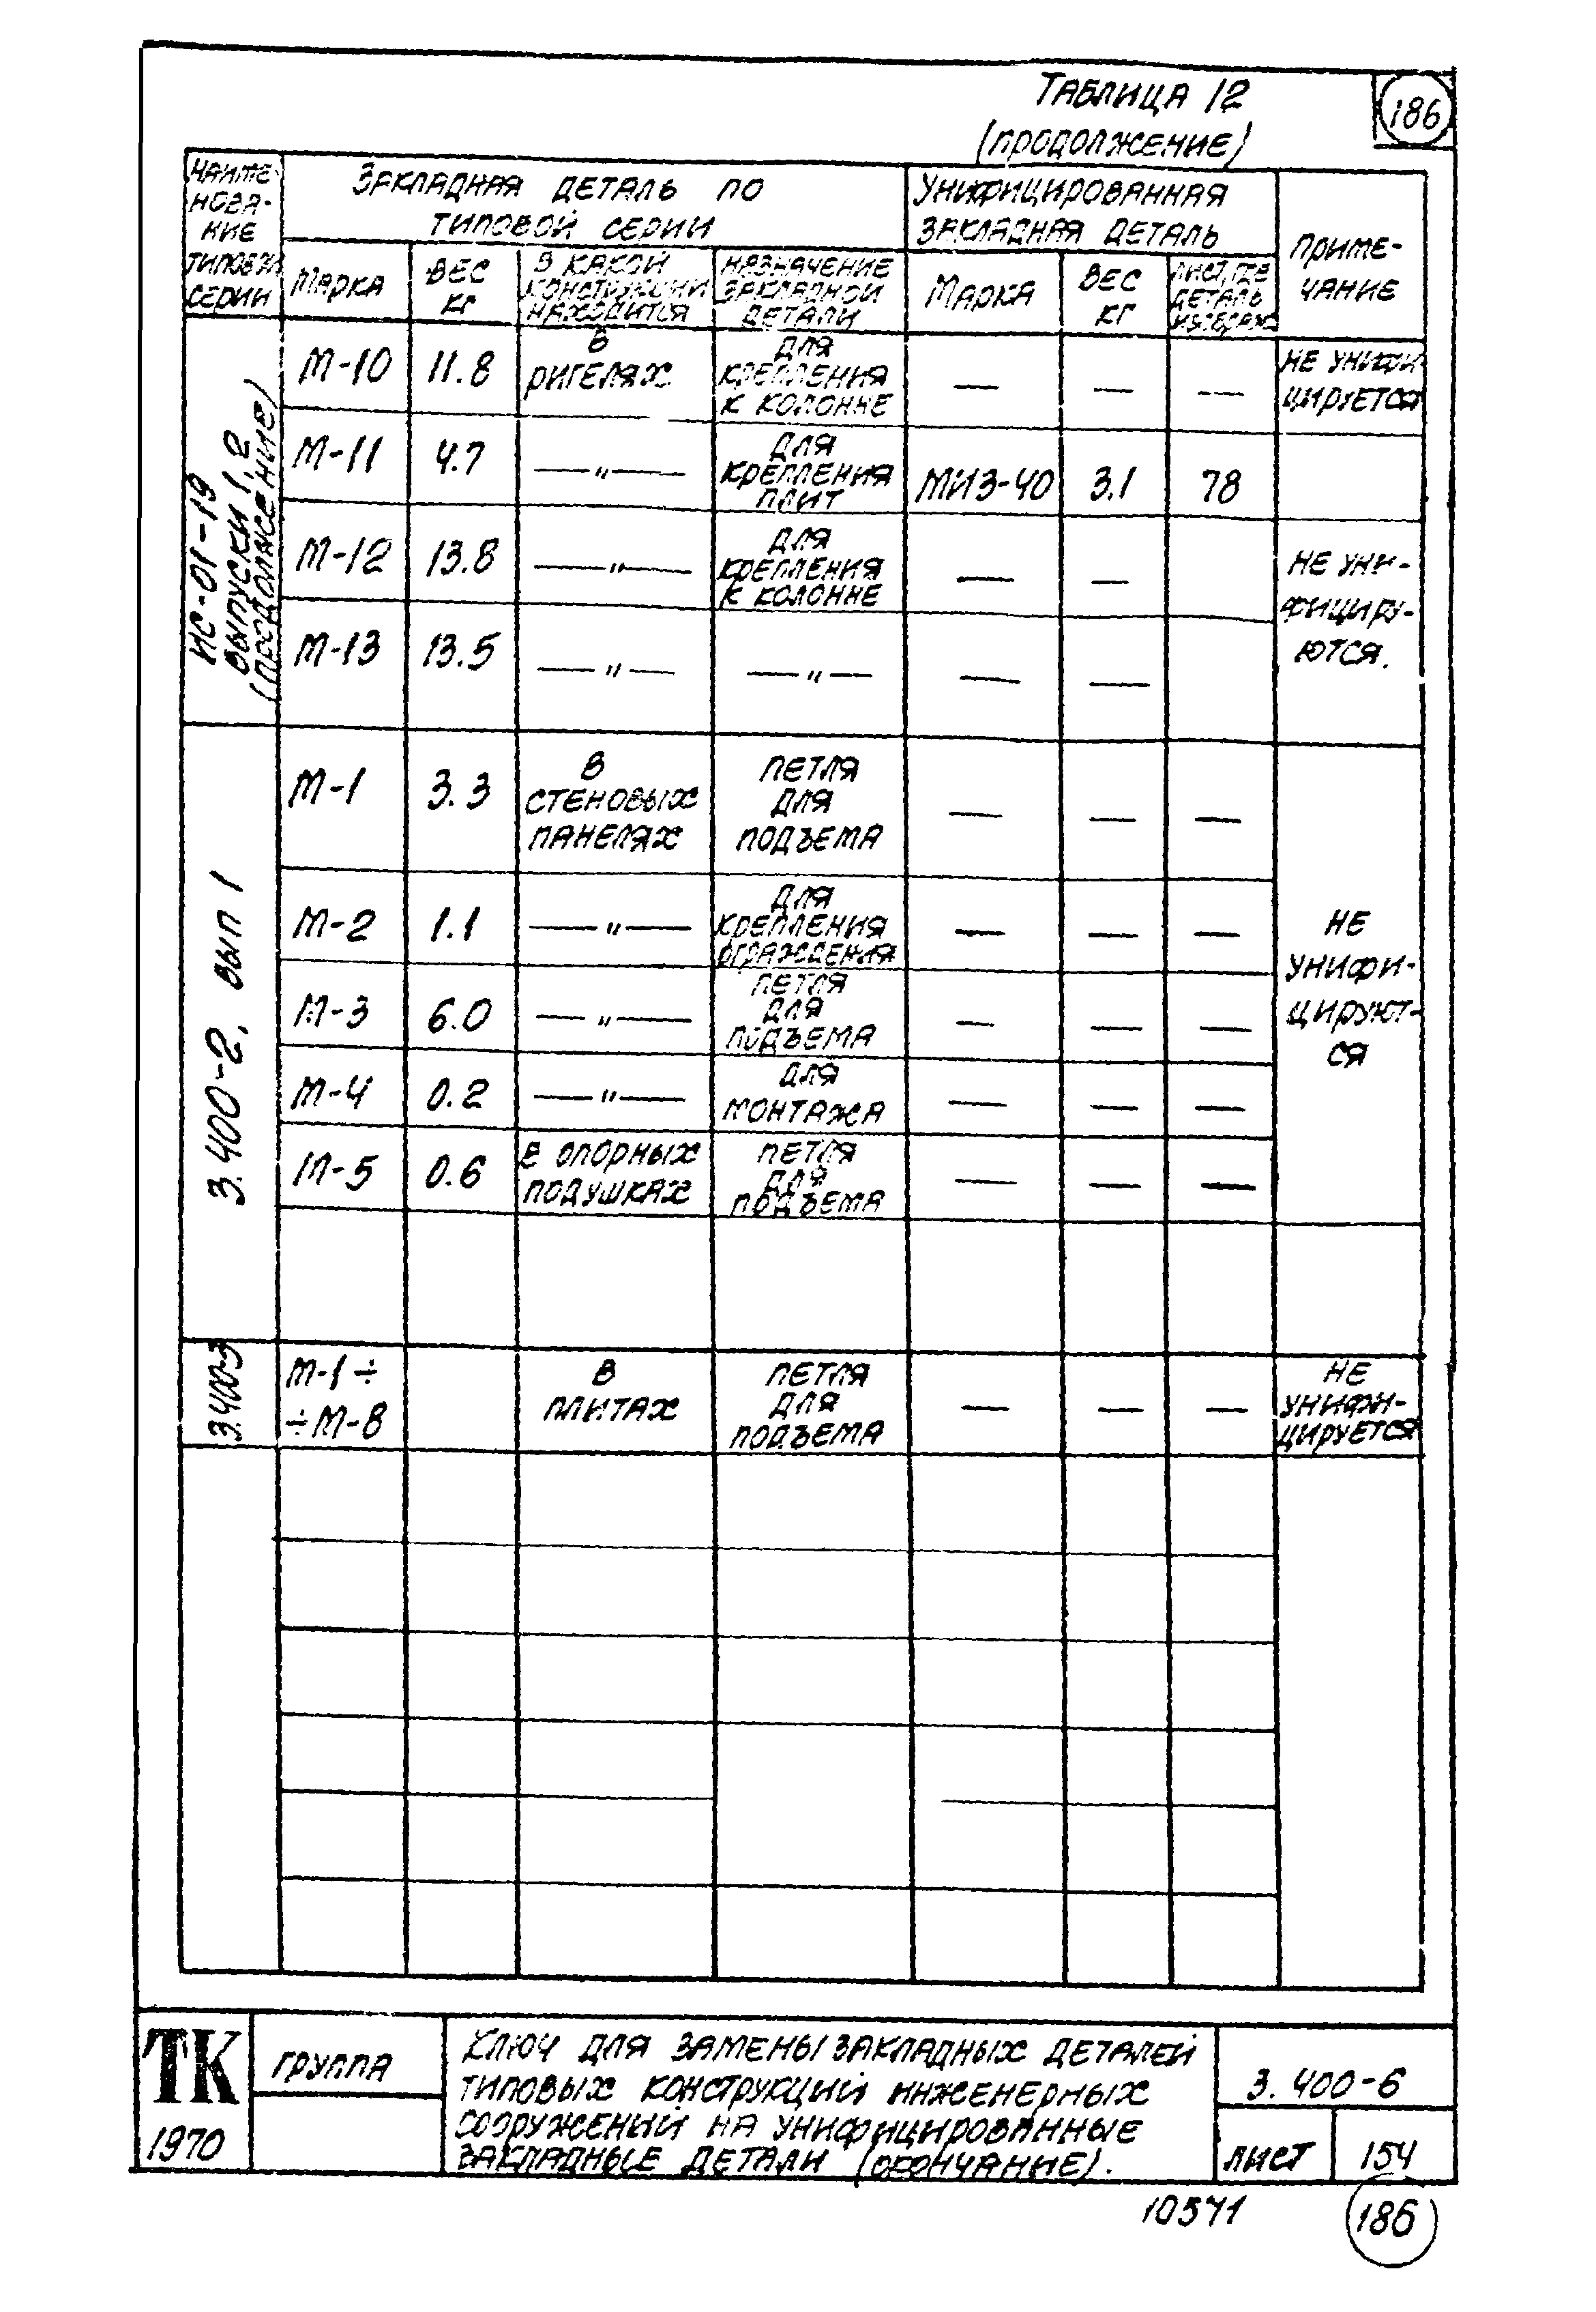 ТАБЛИЦА 12
(ПРОДОЛЖЕНИЕ)
186
НАИМЕ-
НОВА-
НИЕ
ТИПОВОЙ
СЕРИИ
ЗАКЛАДНАЯ ДЕТАЛЬ ПО
ТИПОВОЙ СЕРИИ
УНИФИЦИРОВАННАЯ
ЗАКЛАДНАЯ ДЕТАЛЬ
ПРИМЕ-
ЧАНИЕ
МАРКА
ВЕС
КГ
В КАКОЙ
КОНСТРУКЦИИ
НАХОДИТСЯ
НАЗНАЧЕНИЕ
ЗАКЛАДНОЙ
ДЕТАЛИ
МАРКА
ВЕС
КГ
ЛИСТ, ГДЕ
ДЕТАЛЬ
ИС-01-19
ВЫПУСКИ 1,2
(ПРОДОЛЖЕНИЕ)
М-10 11.8 В РИГЕЛЯХ ДЛЯ КРЕПЛЕНИЯ К КОЛОННЕ — — — НЕ УНИФИ-ЦИРУЕТСЯ
М-11 4.7 —〃— ДЛЯ КРЕПЛЕНИЯ ПЛИТ МИЗ-40 3.1 78
М-12 13.8 —〃— ДЛЯ КРЕПЛЕНИЯ К КОЛОННЕ — — НЕ УНИ-ФИЦИРУ-ЮТСЯ.
М-13 13.5 —〃— —〃— — —
3.400-2, ВЫП 1
М-1 3.3 В СТЕНОВЫХ ПАНЕЛЯХ ПЕТЛЯ ДЛЯ ПОДЪЕМА — — —
М-2 1.1 —〃— ДЛЯ КРЕПЛЕНИЯ ОГРАЖДЕНИЯ — — — НЕ УНИФИ-ЦИРУЮТ-СЯ
М-3 6.0 —〃— ПЕТЛЯ ДЛЯ ПОДЪЕМА — — —
М-4 0.2 —〃— ДЛЯ МОНТАЖА — — —
М-5 0.6 В ОПОРНЫХ ПОДУШКАХ ПЕТЛЯ ДЛЯ ПОДЪЕМА — — —
3.400-3
М-1 ÷ ÷ М-8 В ПЛИТАХ ПЕТЛЯ ДЛЯ ПОДЪЕМА — — — НЕ УНИФИ-ЦИРУЕТСЯ
ТК
1970
ГРУППА
КЛЮЧ ДЛЯ ЗАМЕНЫ ЗАКЛАДНЫХ ДЕТАЛЕЙ
ТИПОВЫХ КОНСТРУКЦИЙ ИНЖЕНЕРНЫХ
СООРУЖЕНИЙ НА УНИФИЦИРОВАННЫЕ
ЗАКЛАДНЫЕ ДЕТАЛИ (ОКОНЧАНИЕ).
3.400-6
ЛИСТ 154
10571
186